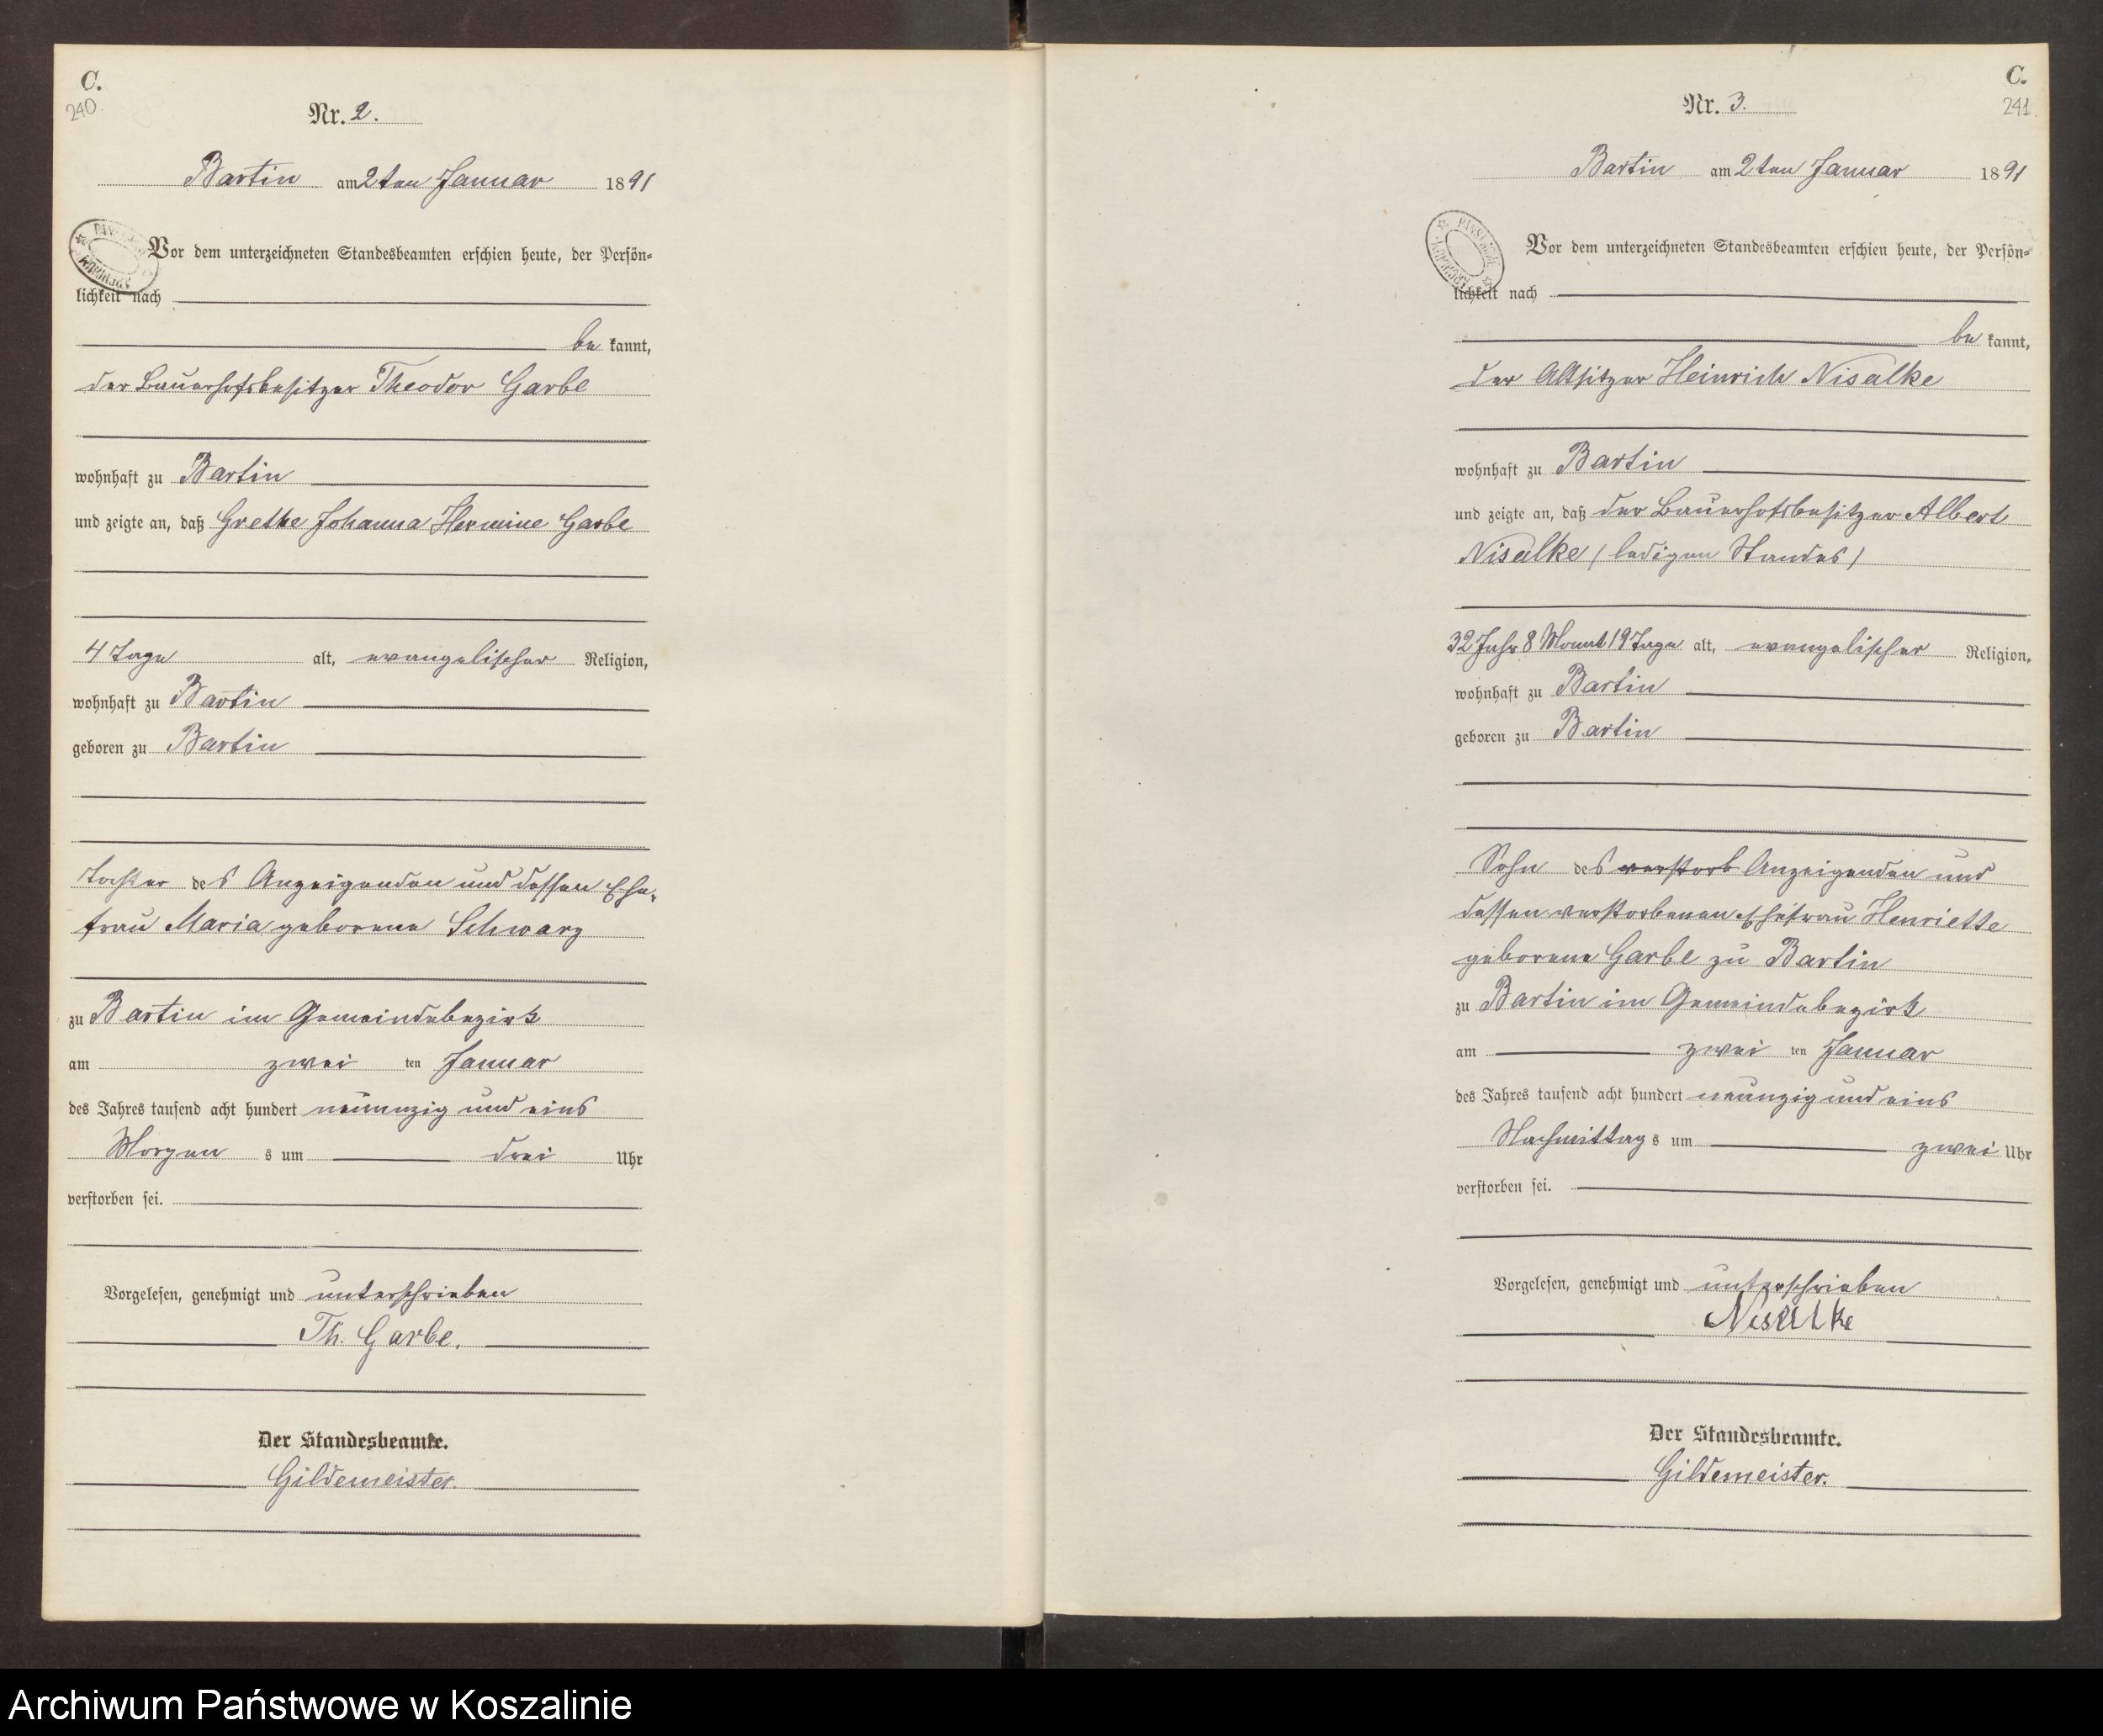 C.
240
Nr. 2.
Bartin am 2ten Januar 1891
Vor dem unterzeichneten Standesbeamten erschien heute, der Persön-
lichkeit nach
be kannt,
der Bauerhofsbesitzer Theodor Garbe
wohnhaft zu Bartin
und zeigte an, daß Grethe Johanna Hermine Garbe
4 Tage alt, evangelischer Religion,
wohnhaft zu Bartin
geboren zu Bartin
Tochter des Anzeigenden und dessen Ehe-
frau Maria geborene Schwarz
zu Bartin im Gemeindebezirk
am zwei ten Januar
des Jahres tausend acht hundert neunzig und eins
Morgen s um drei Uhr
verstorben sei.
Vorgelesen, genehmigt und unterschrieben
Th. Garbe.
Der Standesbeamte.
Gildemeister.
C.
241
Nr. 3.
Bartin am 2ten Januar 1891
Vor dem unterzeichneten Standesbeamten erschien heute, der Persön-
lichkeit nach
be kannt,
der Altsitzer Heinrich Nisalke
wohnhaft zu Bartin
und zeigte an, daß der Bauerhofsbesitzer Albert
Nisalke / ledigen Standes /
32 Jahr 8 Monat 19 Tage alt, evangelischer Religion,
wohnhaft zu Bartin
geboren zu Bartin
Sohn des verstorb Anzeigenden und
dessen verstorbenen Ehefrau Henriette
geborene Garbe zu Bartin
zu Bartin im Gemeindebezirk
am zwei ten Januar
des Jahres tausend acht hundert neunzig und eins
Nachmittag s um zwei Uhr
verstorben sei.
Vorgelesen, genehmigt und unterschrieben
Nisalke
Der Standesbeamte.
Gildemeister.
Archiwum Państwowe w Koszalinie